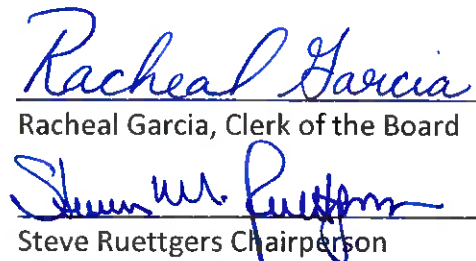 Racheal Garcia
Racheal Garcia, Clerk of the Board
Steven M. Ruettgers
Steve Ruettgers Chairperson